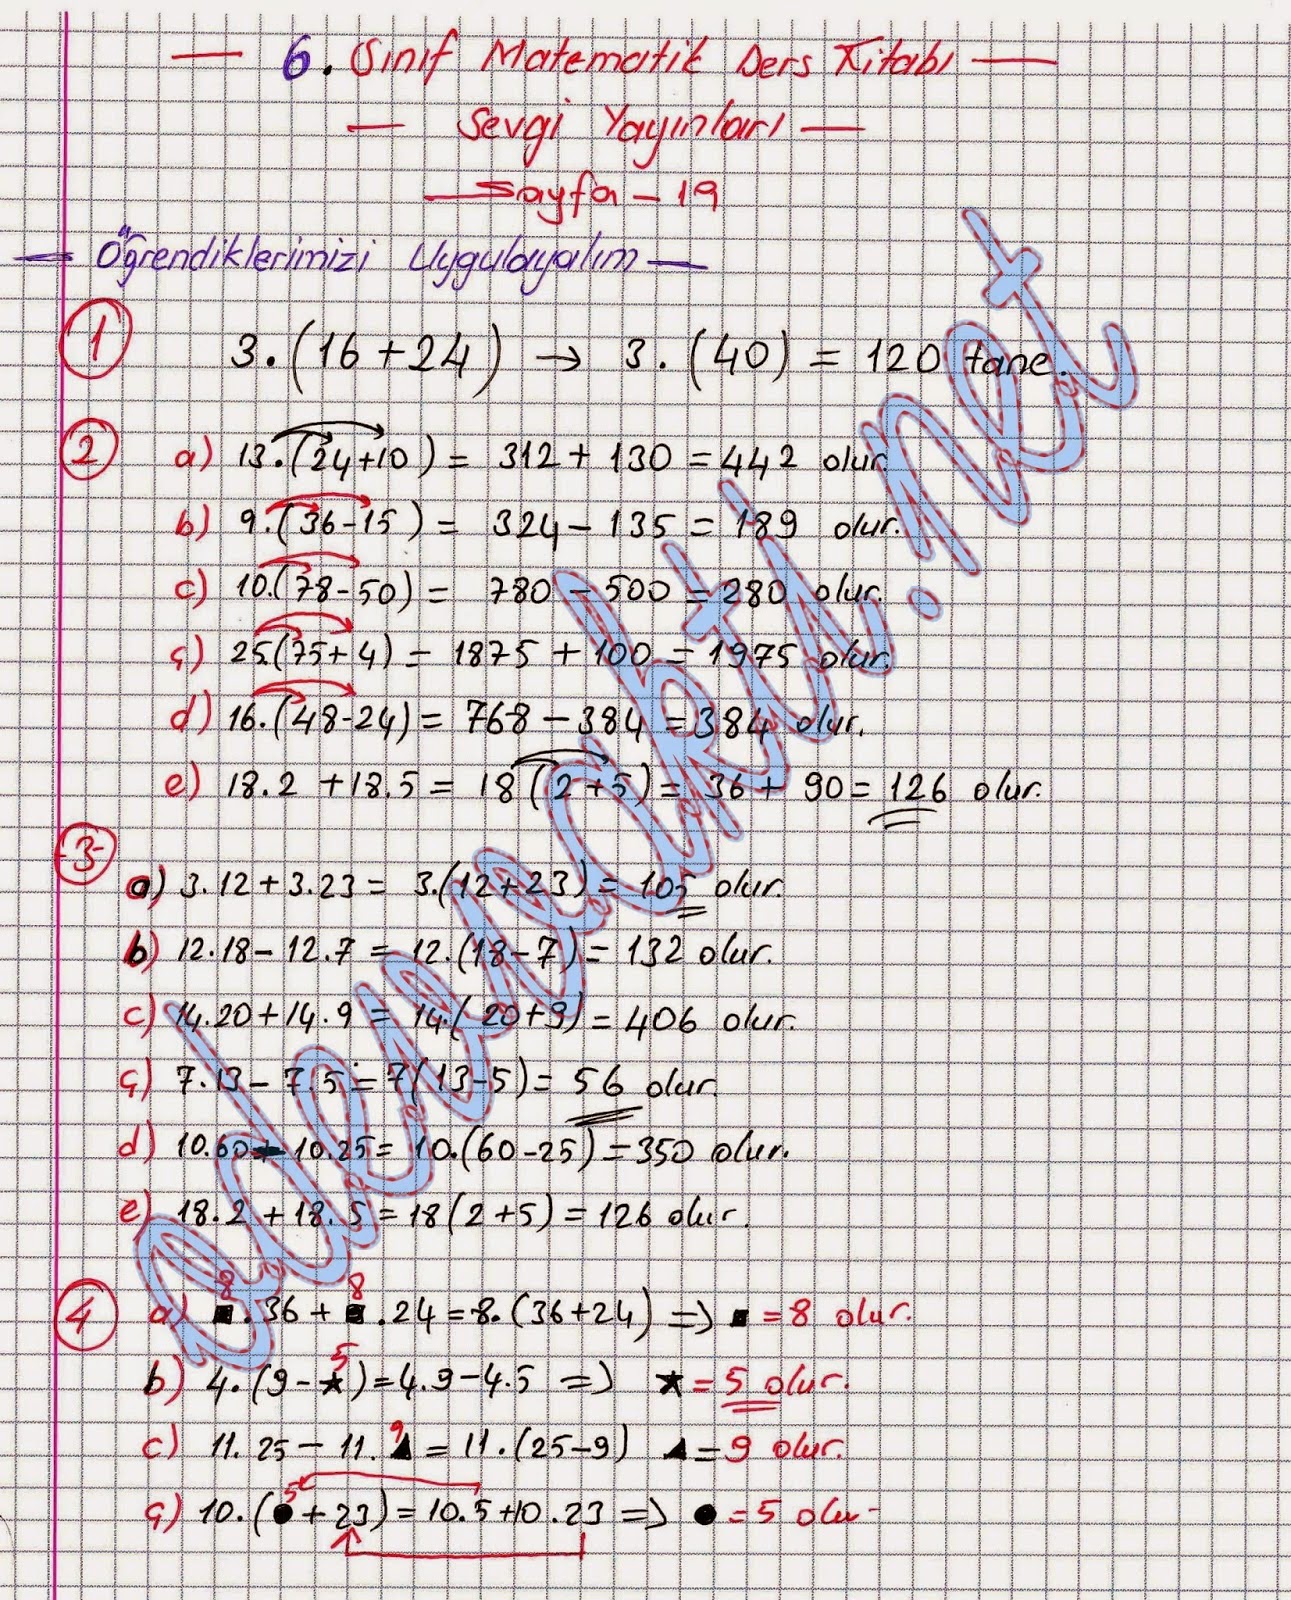 — 6. Sınıf Matematik Ders Kitabı —
— Sevgi Yayınları —
— Sayfa - 19
— Öğrendiklerimizi Uygulayalım —
1 3.(16+24) → 3.(40) = 120 tane.
2 a) 13.(24+10) = 312 + 130 = 442 olur.
b) 9.(36-15) = 324 - 135 = 189 olur.
c) 10.(78-50) = 780 - 500 = 280 olur.
ç) 25(75+4) = 1875 + 100 = 1975 olur.
d) 16.(48-24) = 768 - 384 = 384 olur.
e) 18.2 + 18.5 = 18(2+5) = 36 + 90 = 126 olur.
-3-
a) 3.12 + 3.23 = 3.(12+23) = 105 olur.
b) 12.18 - 12.7 = 12.(18-7) = 132 olur.
c) 14.20 + 14.9 = 14.(20+9) = 406 olur.
ç) 7.13 - 7.5 = 7(13-5) = 56 olur.
d) 10.60 - 10.25 = 10.(60-25) = 350 olur.
e) 18.2 + 18.5 = 18(2+5) = 126 olur.
8 8
4 a) ■.36 + ■.24 = 8.(36+24) => ■ = 8 olur.
5
b) 4.(9-★) = 4.9 - 4.5 => ★ = 5 olur.
9
c) 11.25 - 11.▲ = 11.(25-9) ▲ = 9 olur.
5
ç) 10.(●+23) = 10.5 + 10.23 => ● = 5 olur
odevvakti.net